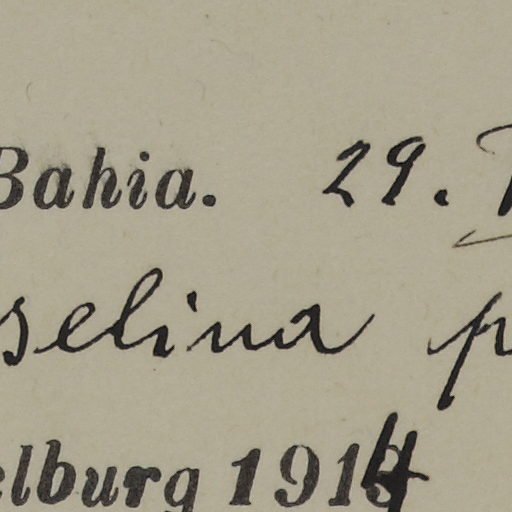 Bahia. 29.
selina p
elburg 1914